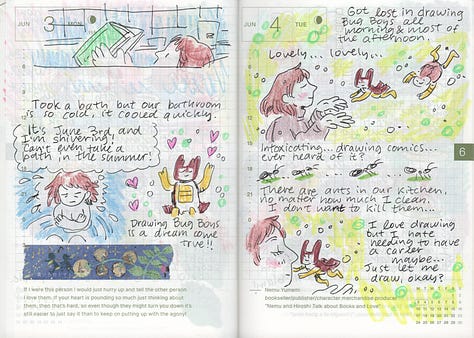 JUN
3
MON
Took a bath but our bathroom
is so cold, it cooled quickly.
It's June 3rd, and
I'm shivering!
Can't even take a
bath in the summer!
Drawing Bug Boys
is a dream come
true!!
If I were this person I would just hurry up and tell the other person
I love them. If your heart is pounding so much just thinking about
them, then that's hard, so even though they might turn you down it's
still easier to just say it than to keep on putting up with the agony!
JUN
4
TUE
Got lost in drawing
Bug Boys all
morning & most of
the afternoon.
Lovely... lovely...
Intoxicating... drawing comics...
ever heard of it?
There are ants in our kitchen,
no matter how much I clean.
I don't want to kill them...
I love drawing
but I hate
needing to have
a career
maybe...
Just let me
draw, okay?
6
Nemu Yumemi
bookseller/publisher/character merchandise producer
"Nemu and Hiroshi Talk about Books and Love"